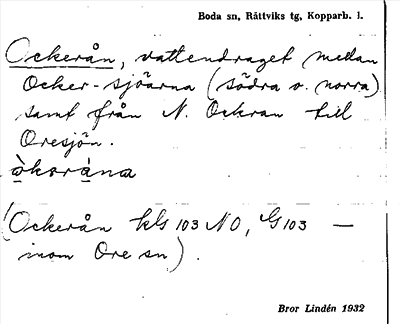 Boda sn, Rättviks tg, Kopparb. l.
Ockerån, vattendraget mellan
Ocker-sjöarna (södra o. norra)
samt från N. Ockran till
Oresjön.
òkərá̱na
(Ockerån kls 103 NO, G 103 —
inom Ore sn).
Bror Lindén 1932